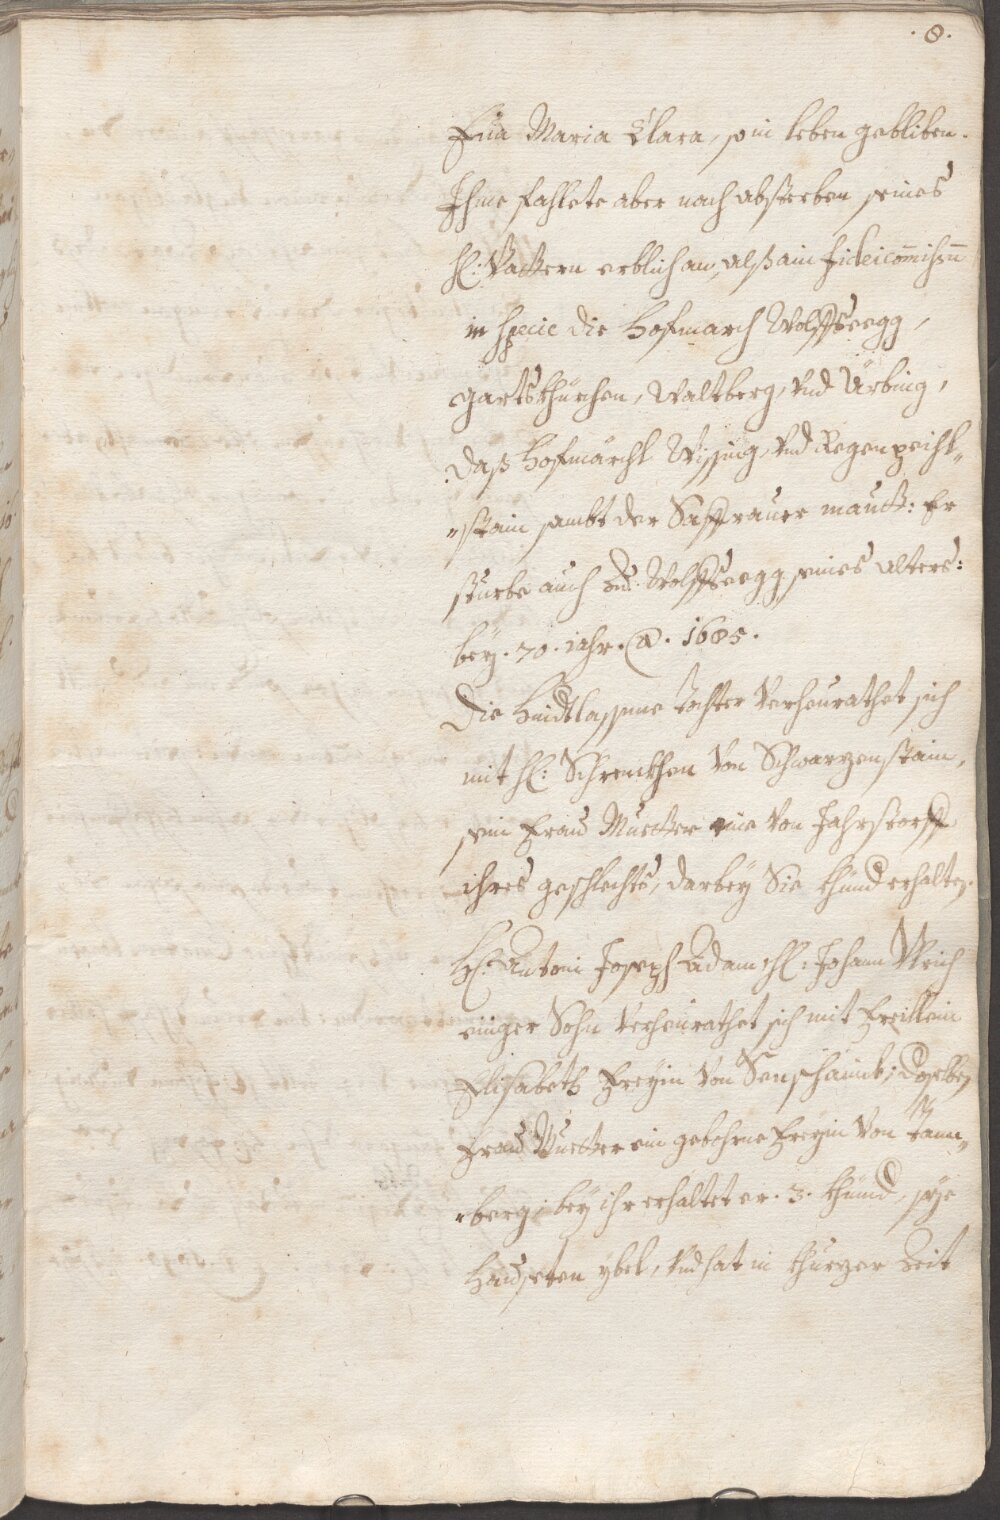 . 8 .
Eua Maria Clara, so in leben gebliben.
Ihme fahlete aber nach absterben seines
H: Vattern erblich an, alß ain fideicom̄ihsū
in specie die Hofmarch Wolffsegg,
gartskhürchen, Waltberg, vnd Ürbing,
daß Hofmärchl Wissing, vnd Regenpeihl„
„stain sambt der Saffrauer mautt: Er
sturbe auch zu Wolffsegg seines alters:
bey . 70 . iahr . A͠o . 1685 .
Die hindtlassne tochter verheurathet sich
mit H: Schrenckhen von Schwarzenstain,
sein Frau Muetter eine von Jahrstorff
ihres geschlechts, darbey Sie khünd erhalten.
H: Antoni Joseph Adam H: Johann
einiger Sohn verheürathet sich mit Freillein
Elisabeth Freyin von dessen
Frau Muetter ein gebohrne Freyin von Tann„
„berg; bey ihr erhaltet er . 3 . khünd, sye
hauseten ybel, vnd hat in khurzer Zeit